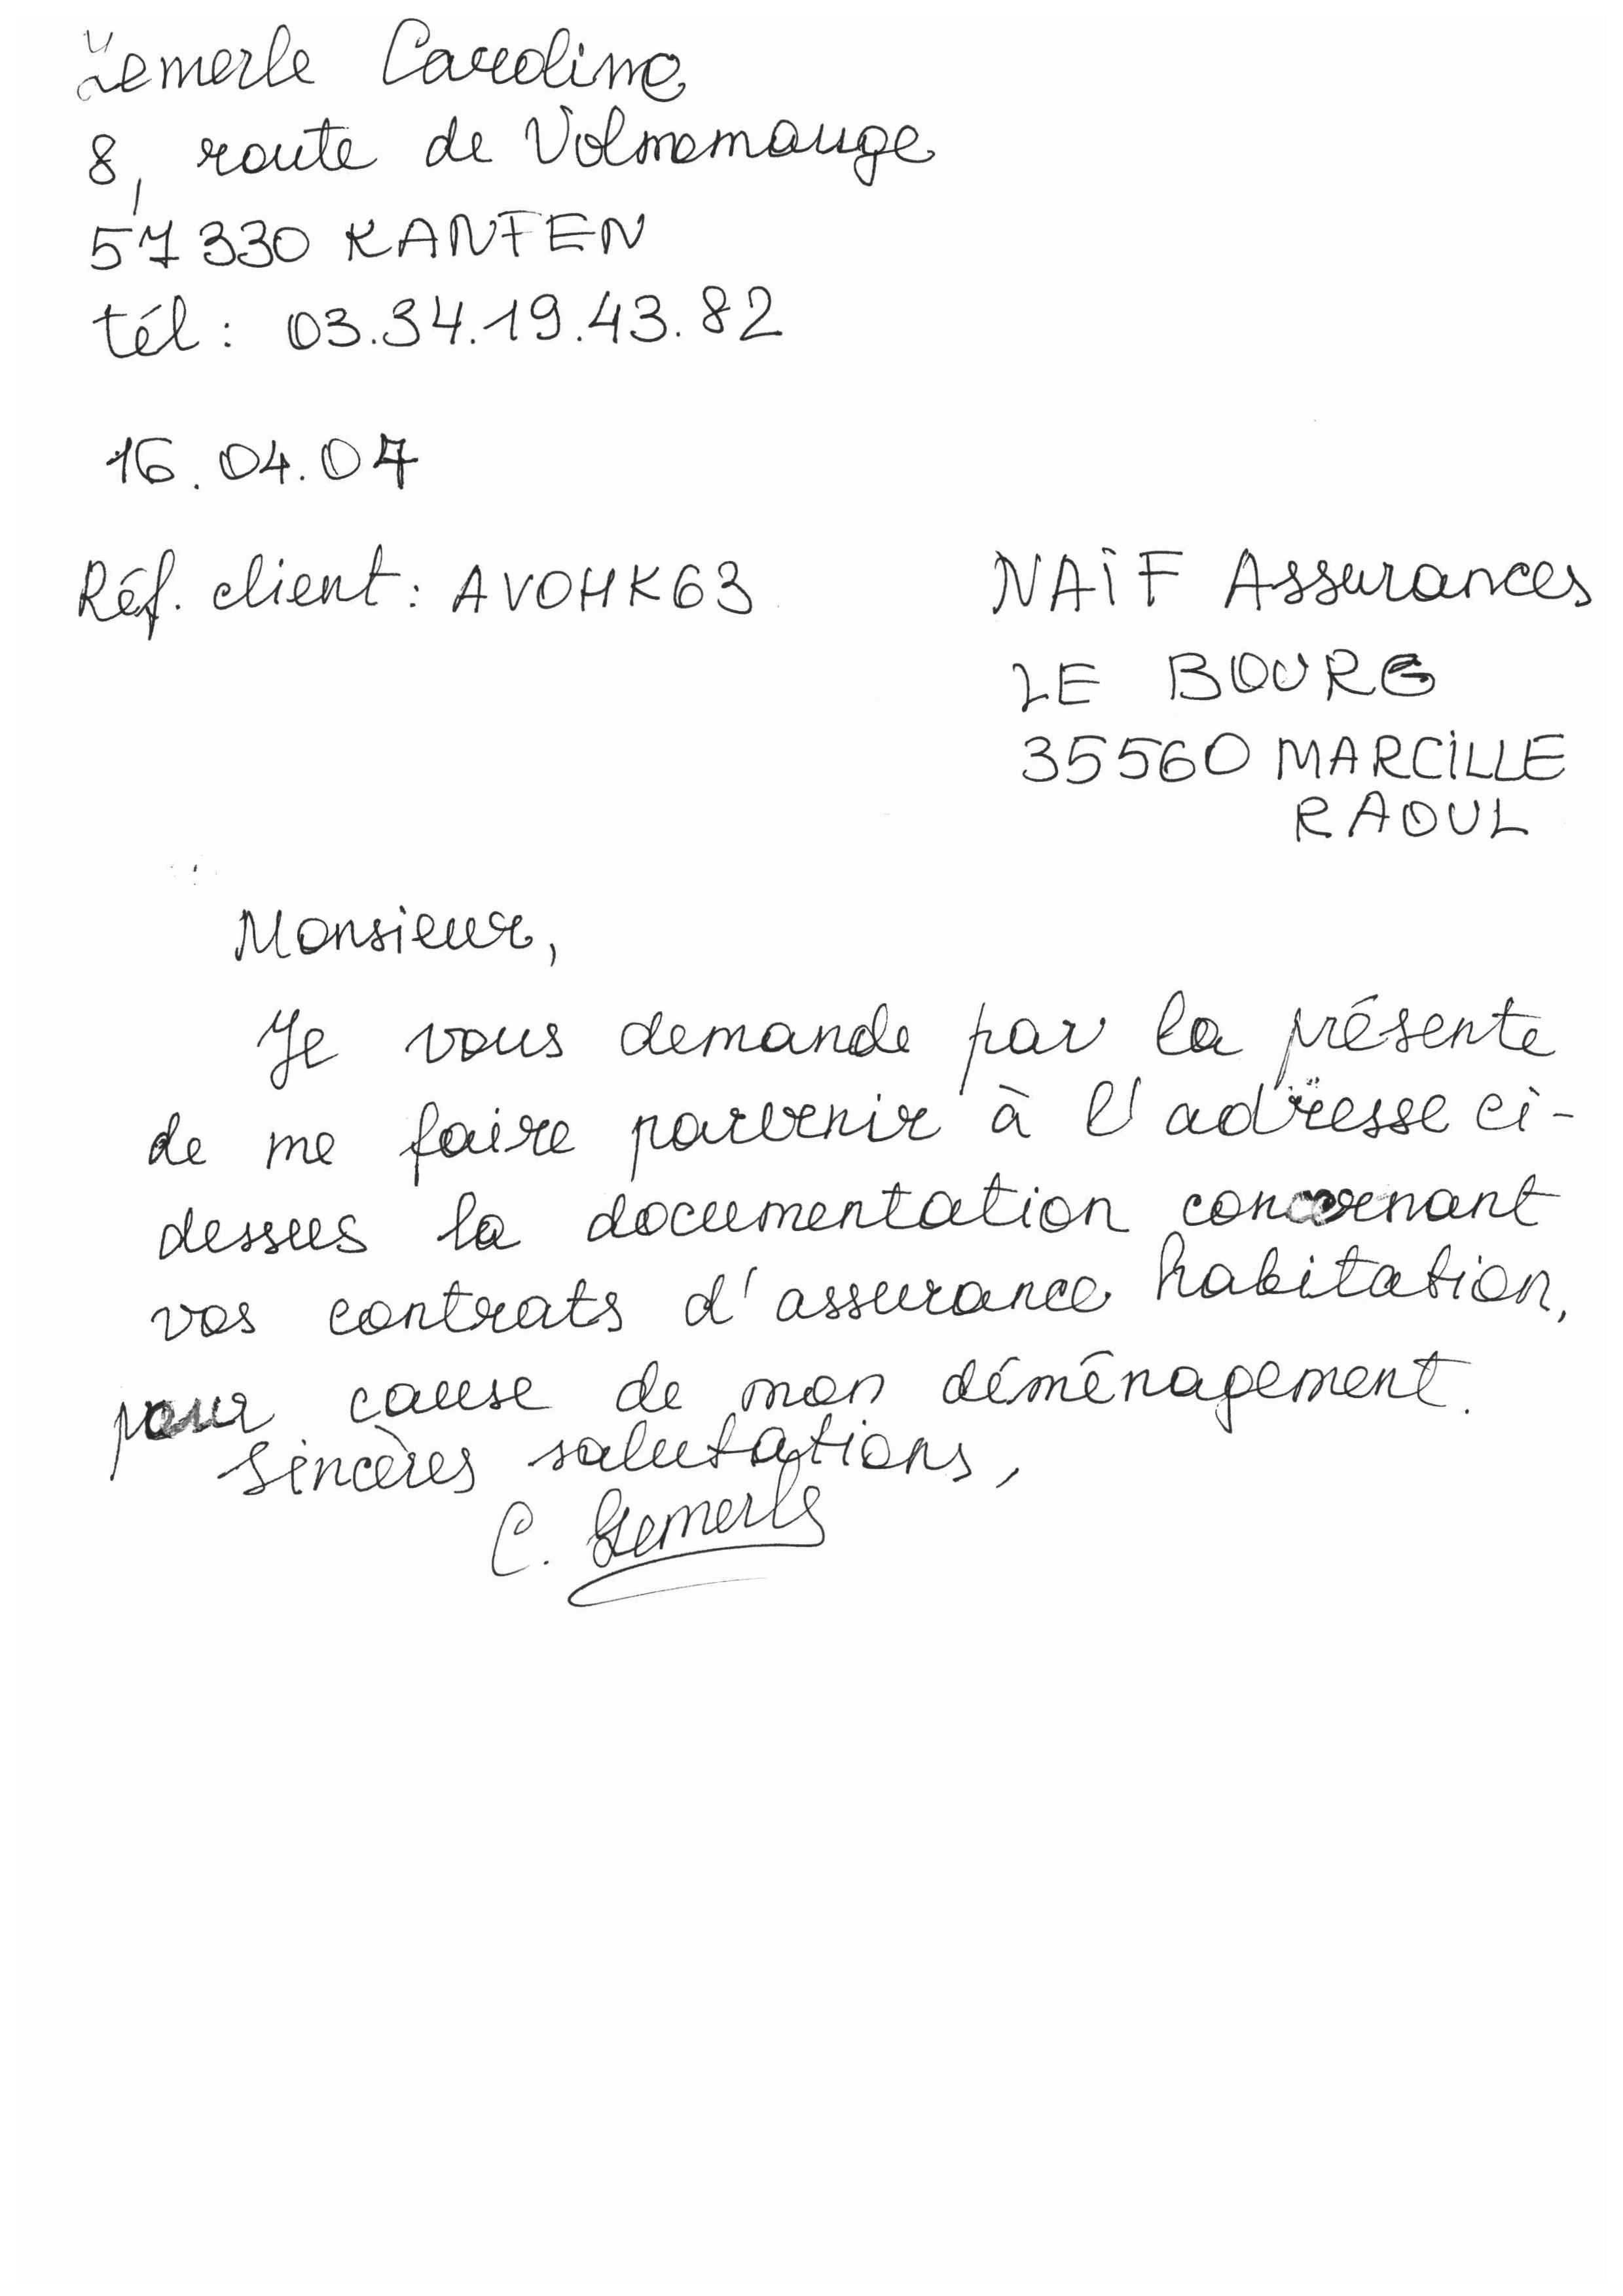 Lemerle Caroline
8, route de Volmerange
57330 KANFEN
tél : 03.34.19.43.82
16.04.07
Réf. client : AVOHK63
NAIF Assurances
LE BOURG
35560 MARCILLE
RAOUL
Monsieur,
Je vous demande par la présente
de me faire parvenir à l'adresse ci-
dessus la documentation concernant
vos contrats d'assurance habitation,
pour cause de mon déménagement.
Sincères salutations,
C. Lemerle